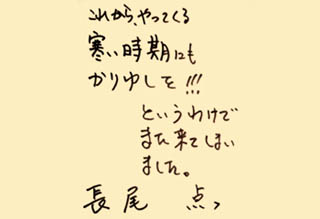 これから、やってくる
寒い時期にも
かりゆしを!!!
というわけで
また来てしまい
ました。
長尾 点っ